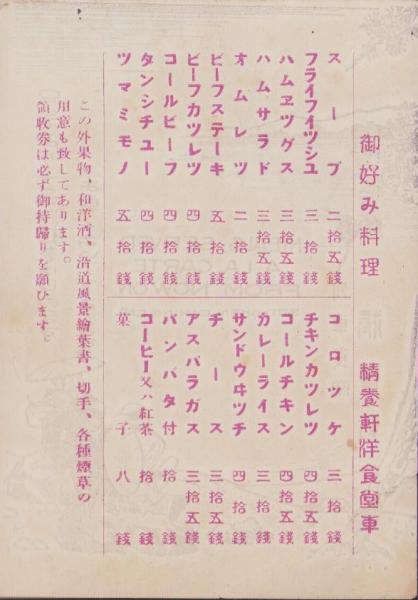 御好み料理　精養軒洋食堂車
スープ　二拾五錢
フライフイツシユ　三拾錢
ハムヱツグス　三拾五錢
ハムサラド　三拾五錢
オムレツ　二拾錢
ビーフステーキ　五拾錢
ビーフカツレツ　四拾錢
コールビーフ　四拾錢
タンシチユー　四拾錢
ツマミモノ　五拾錢
コロツケ　三拾錢
チキンカツレツ　四拾五錢
コールチキン　四拾五錢
カレーライス　三拾錢
サンドウヰツチ　四拾錢
チース　三拾五錢
アスパラガス　三拾五錢
パンバタ付　拾錢
コーヒー又ハ紅茶　拾錢
菓子　八錢
この外果物、和洋酒、沿道風景繪葉書、切手、各種煙草の
用意も致してあります。
領收券は必ず御持歸りを願ひます。